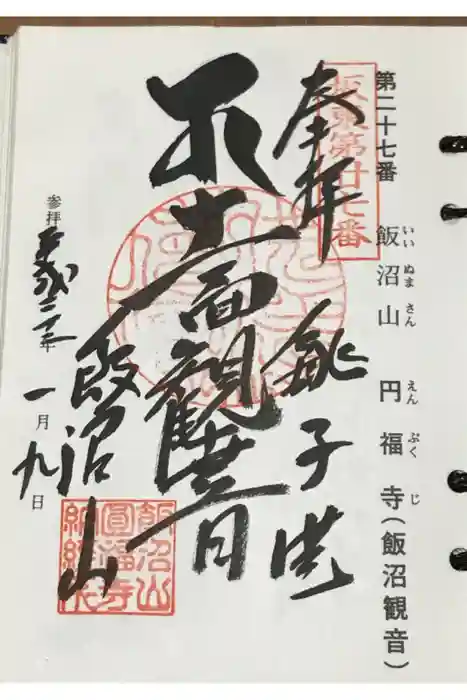 第二十七番
飯沼山 円福寺(飯沼観音)
いいぬまさん えんぷくじ
坂東第廿七番
奉拝
銚子港
十一面観音
飯沼山
参拝 平成二三年 一月九日
飯沼山
圓福寺